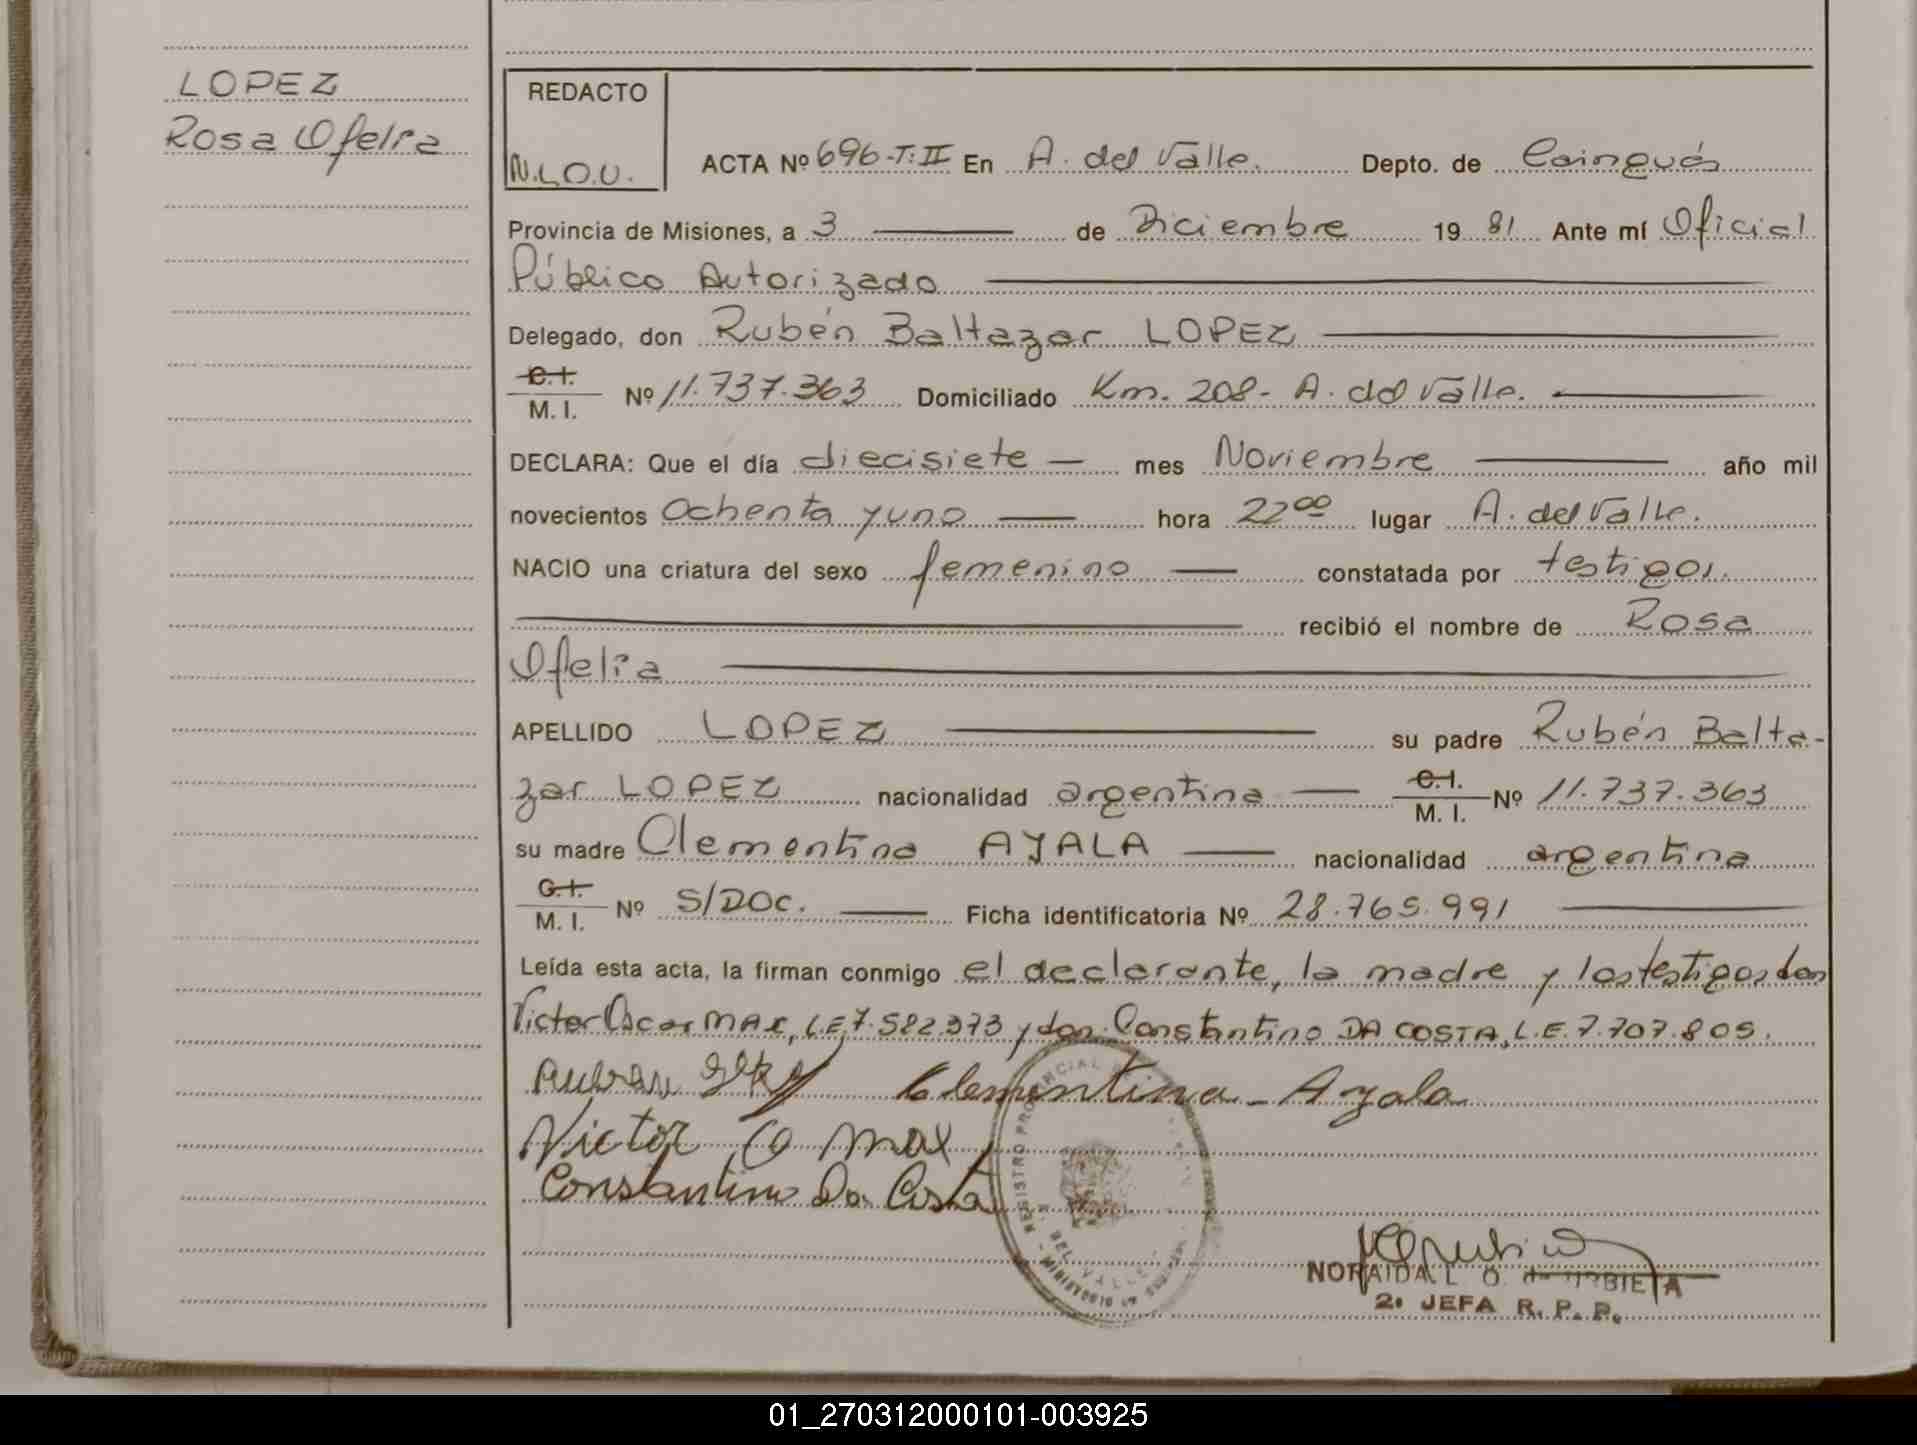 LOPEZ
Rosa Ofelia
REDACTO
N.L.O.U.
ACTA Nº 696-T:II En A. del Valle. Depto. de Cainguás
Provincia de Misiones, a 3 de Diciembre 19 81 Ante mí Oficial
Público Autorizado
Delegado, don Rubén Baltazar LOPEZ
C.I.
M. I. Nº 11.737.363 Domiciliado Km. 208- A. del Valle.
DECLARA: Que el día diecisiete mes Noviembre año mil
novecientos ochenta y uno hora 22⁰⁰ lugar A. del Valle.
NACIO una criatura del sexo femenino constatada por testigos.
recibió el nombre de Rosa
Ofelia
APELLIDO LOPEZ su padre Rubén Balta-
zar LOPEZ nacionalidad argentina C.I. M. I. Nº 11.737.363
su madre Clementina AYALA nacionalidad argentina
C.I.
M. I. Nº S/DOC. Ficha identificatoria Nº 28.765.991
Leída esta acta, la firman conmigo el declarante, la madre y los testigos don
Victor Oscar MAX, L.E.7.582.373 y don Constantino DA COSTA, L.E.7.707.805.
Clementina - Ayala
Victor O Max
Constantino Da Costa
REGISTRO PROVINCIAL
DEL VALLE
MINISTERIO DE
NORAIDA L. O. de URBIETA
2º JEFA R. P. P.
01_270312000101-003925